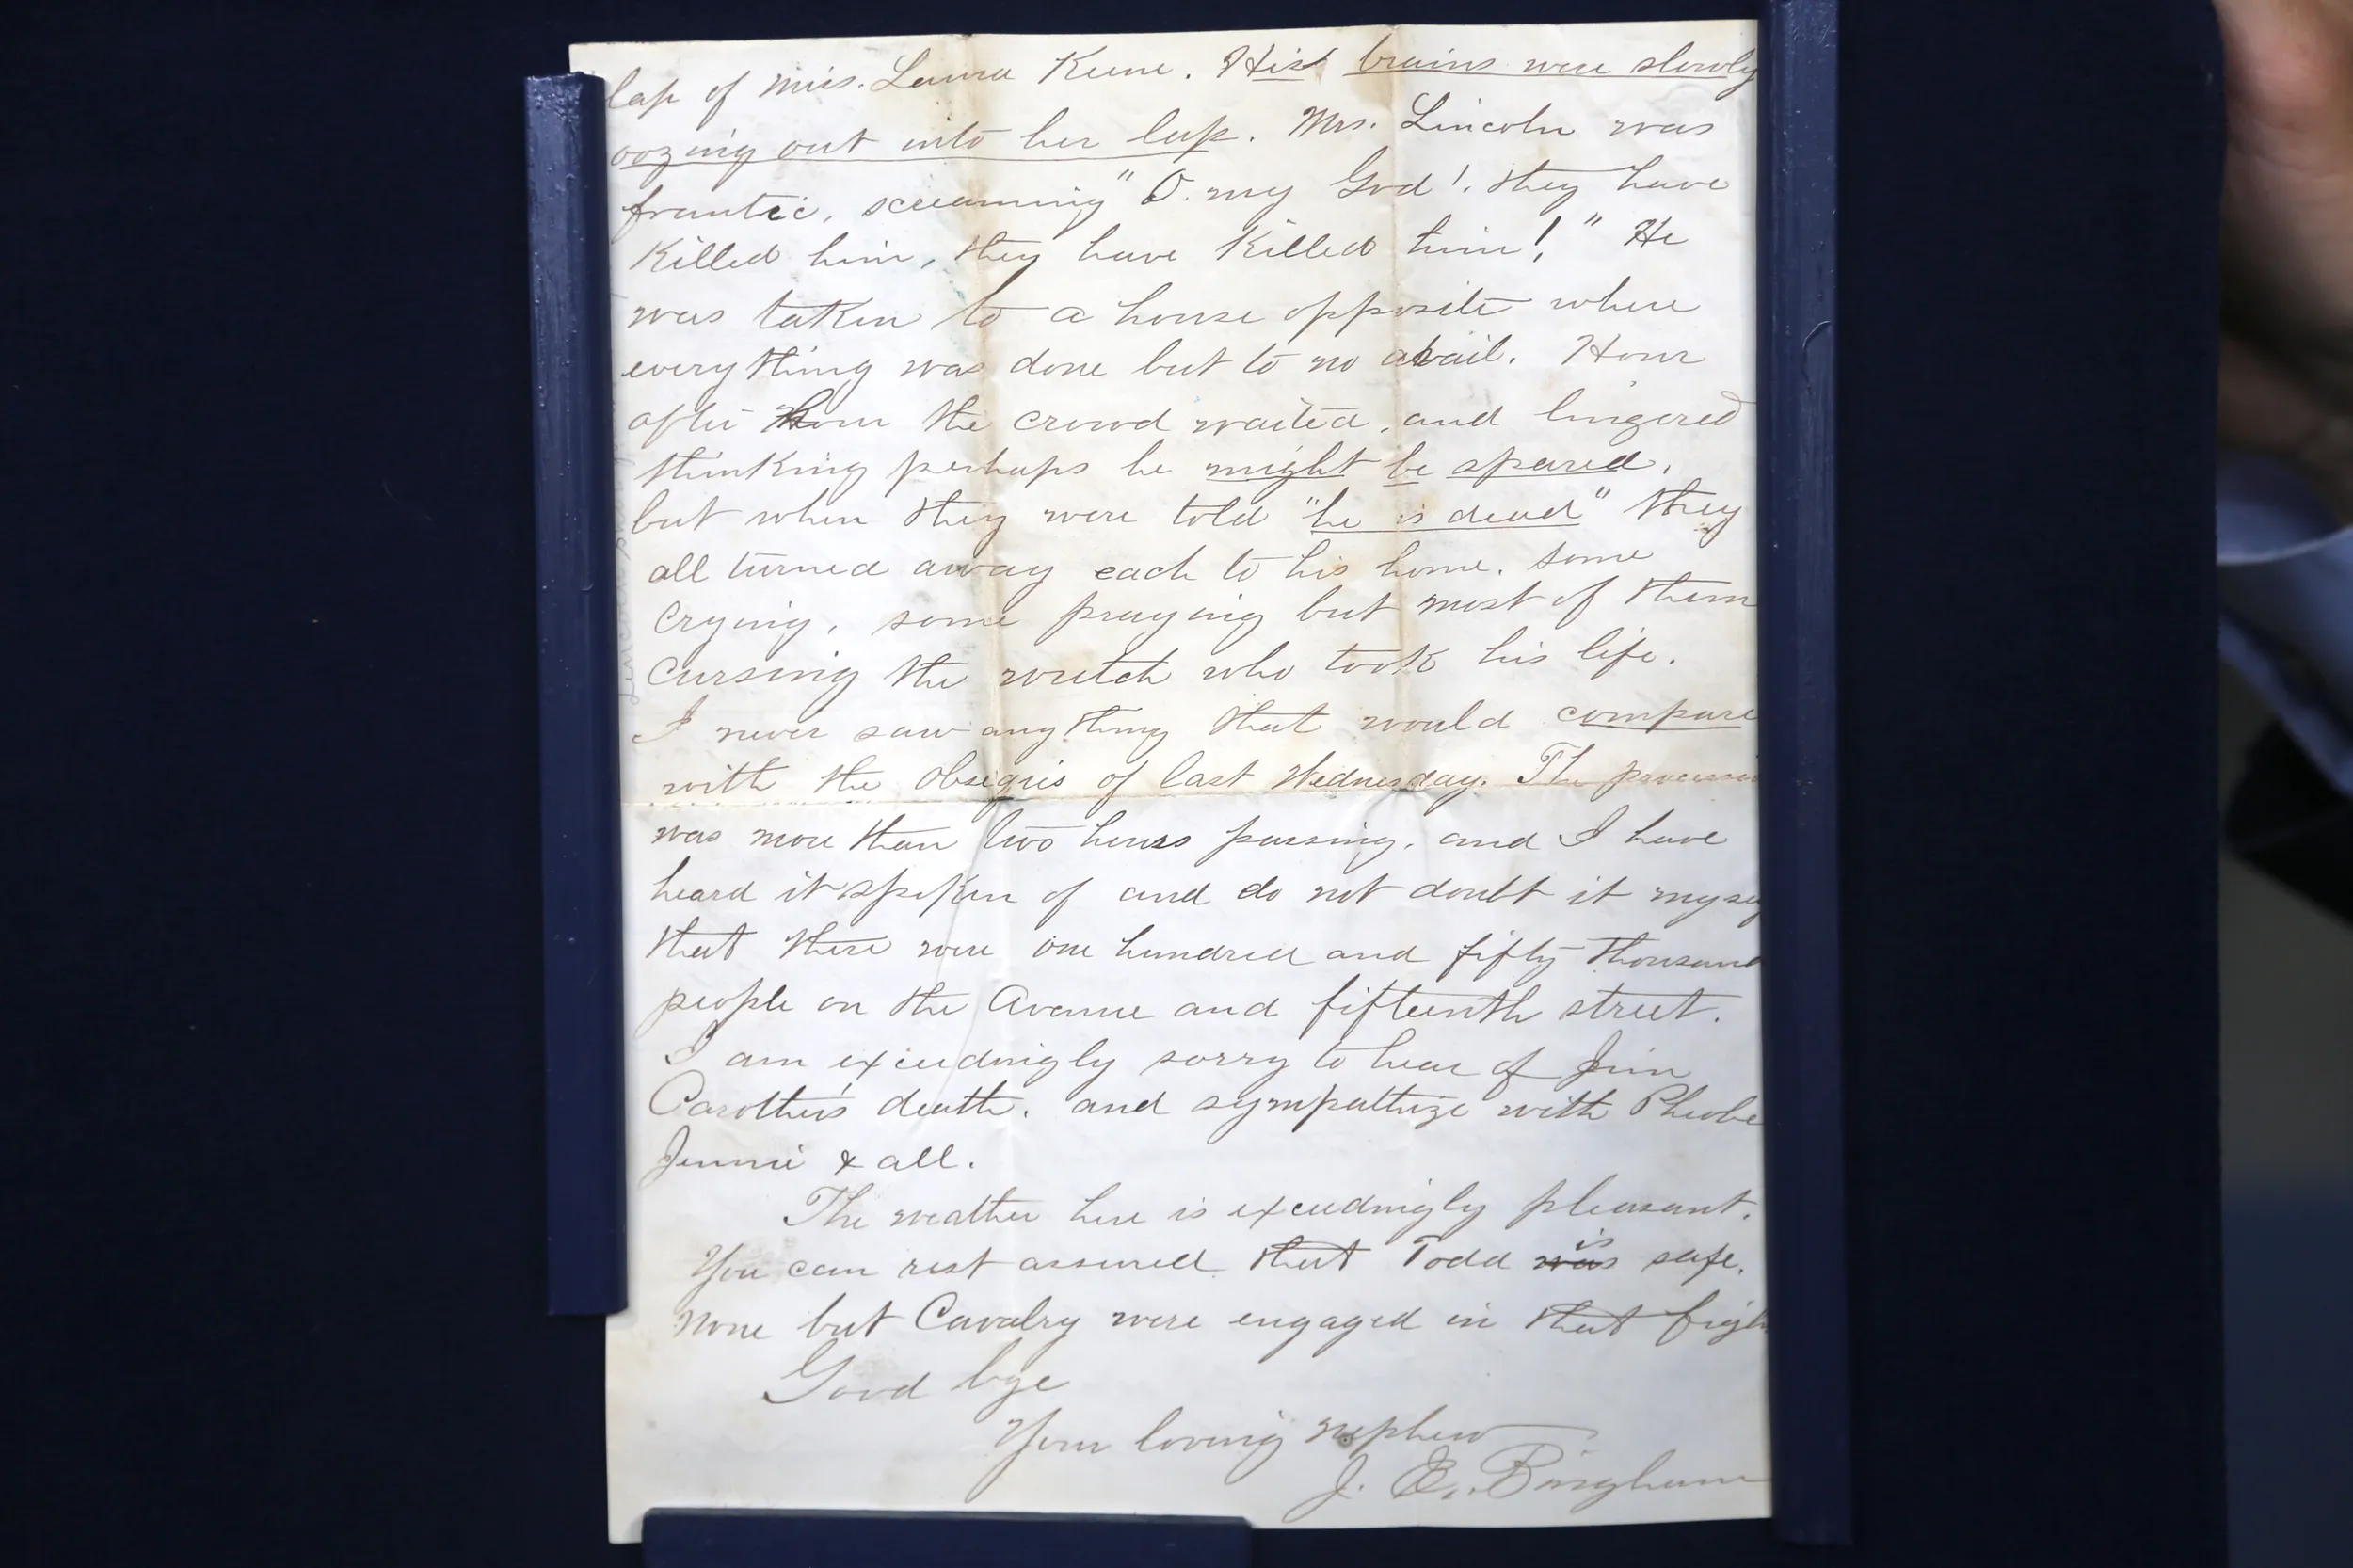 lap of Miss. Laura Keene. His brains were slowly
oozing out into her lap. Mrs. Lincoln was
frantic, screaming "O. my God! they have
Killed him, they have Killed him!" He
was taken to a house opposite where
everything was done but to no avail. Hour
after hour the crowd waited, and lingered
thinking perhaps he might be spared,
but when they were told "he is dead" they
all turned away each to his home. some
crying, some praying but most of them
cursing the wretch who took his life.
I never saw anything that would compare
with the obsequis of last Wednesday. The
was more than two hours passing, and I have
heard it spoken of and do not doubt it
that there were one hundred and fifty thousand
people on the Avenue and fifteenth street.
I am exceedingly sorry to hear of Jim
Carother's death. and sympathize with Pheobe
Jennie & all.
The weather here is exceedingly pleasant.
You can rest assured that Todd was is safe.
None but Cavalry were engaged in that
Good bye
Your loving nephew
J. E. Bingham